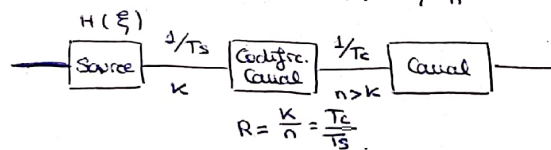 H(ξ)
Source
1/Ts
K
Codific.
Canal
1/Tc
n>K
Canal
R = K/n = Tc/Ts